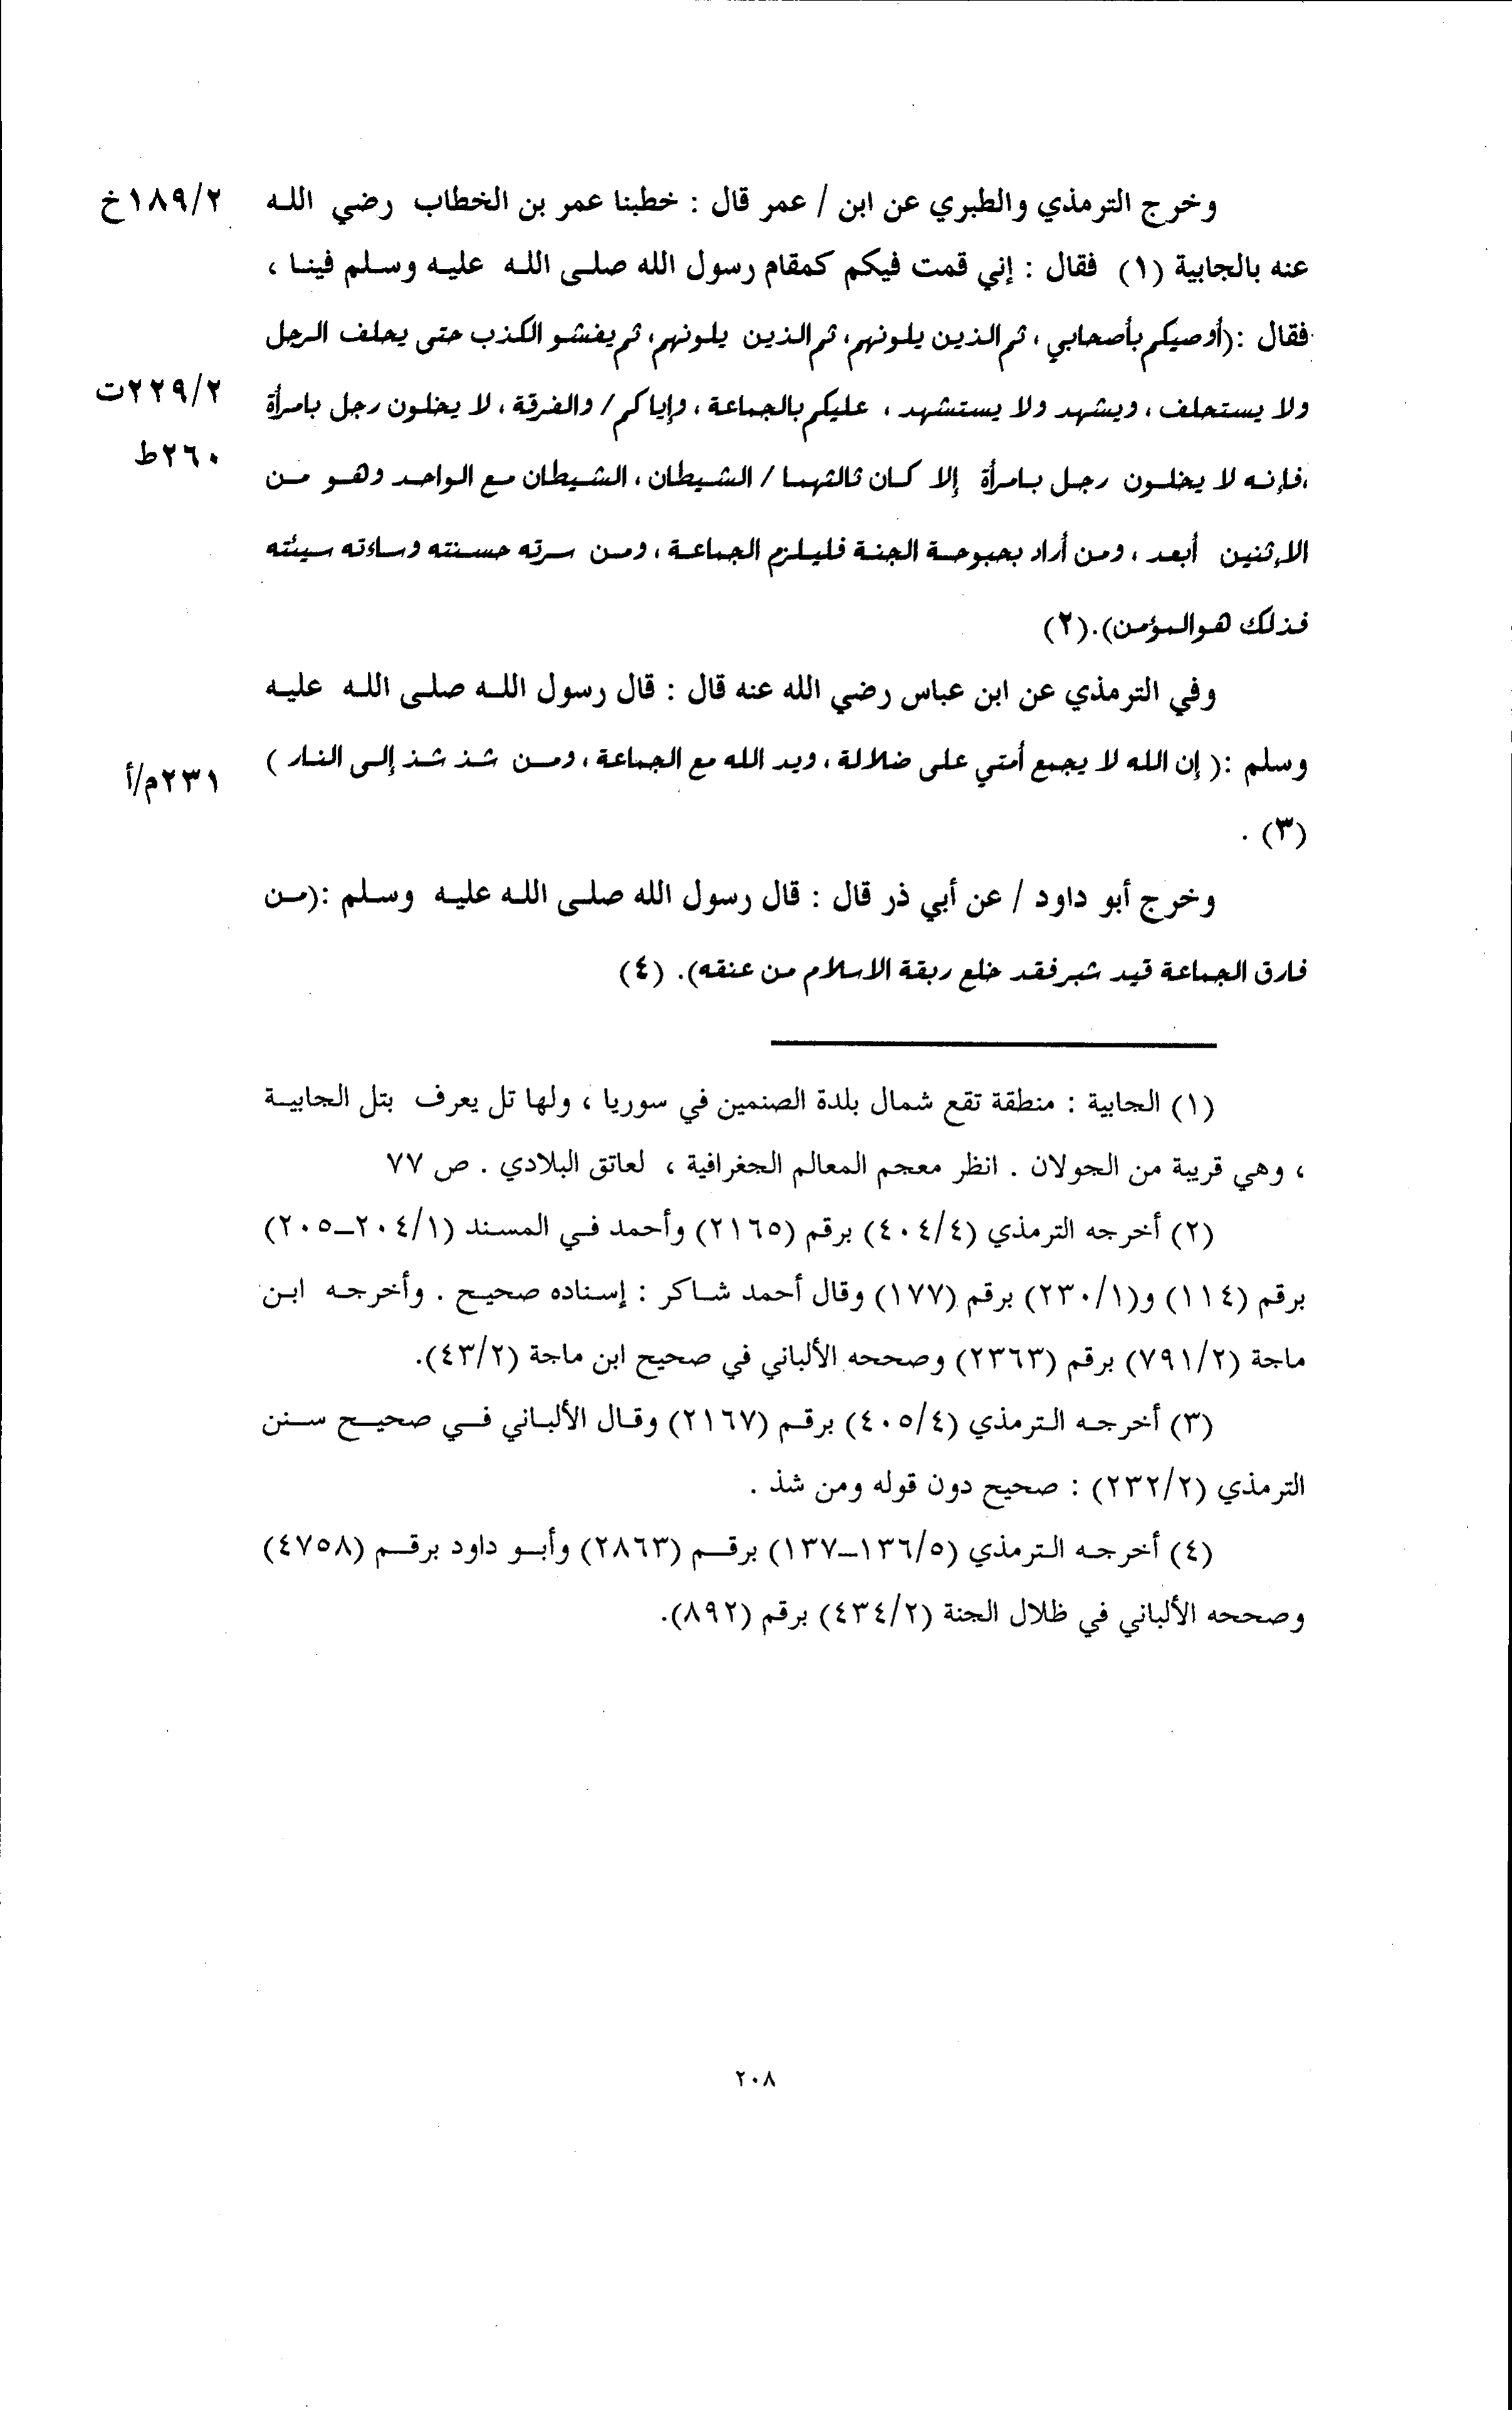 وخرج الترمذي والطبري عن ابن / عمر قال : خطبنا عمر بن الخطاب رضي الله ١٨٩/٢خ
عنه بالجابية (١) فقال : إني قمت فيكم كمقام رسول الله صلى الله عليه وسلم فينا ،
فقال :(أوصيكم بأصحابي ، ثم الذين يلونهم، ثم الذين يلونهم، ثم يفشو الكذب حتى يحلف الرجل
ولا يستحلف ، ويشهد ولا يستشهد ، عليكم بالجماعة ، وإياكم / والفرقة ، لا يخلون رجل بامرأة ٢٢٩/٢ت
،فإنه لا يخلون رجل بامرأة إلا كان ثالثهما / الشيطان ، الشيطان مع الواحد وهو من ٢٦٠ط
الاثنين أبعد ، ومن أراد بحبوحة الجنة فليلزم الجماعة ، ومن سرته حسنته وساءته سيئته
فذلك هوالمؤمن).(٢)
وفي الترمذي عن ابن عباس رضي الله عنه قال : قال رسول الله صلى الله عليه
وسلم :( إن الله لا يجمع أمتي على ضلالة ، ويد الله مع الجماعة ، ومن شذ شذ إلى النار ) ٢٣١م/أ
(٣) .
وخرج أبو داود / عن أبي ذر قال : قال رسول الله صلى الله عليه وسلم :(من
فارق الجماعة قيد شبر فقد خلع ربقة الاسلام من عنقه). (٤)
(١) الجابية : منطقة تقع شمال بلدة الصنمين في سوريا ، ولها تل يعرف بتل الجابية
، وهي قريبة من الجولان . انظر معجم المعالم الجغرافية ، لعاتق البلادي . ص ٧٧
(٢) أخرجه الترمذي (٤٠٤/٤) برقم (٢١٦٥) وأحمد في المسند (٢٠٤/١–٢٠٥)
برقم (١١٤) و(٢٣٠/١) برقم (١٧٧) وقال أحمد شاكر : إسناده صحيح . وأخرجه ابن
ماجة (٧٩١/٢) برقم (٢٣٦٣) وصححه الألباني في صحيح ابن ماجة (٤٣/٢).
(٣) أخرجه الترمذي (٤٠٥/٤) برقم (٢١٦٧) وقال الألباني في صحيح سنن
الترمذي (٢٣٢/٢) : صحيح دون قوله ومن شذ .
(٤) أخرجه الترمذي (١٣٦/٥–١٣٧) برقم (٢٨٦٣) وأبو داود برقم (٤٧٥٨)
وصححه الألباني في ظلال الجنة (٤٣٤/٢) برقم (٨٩٢).
٢٠٨